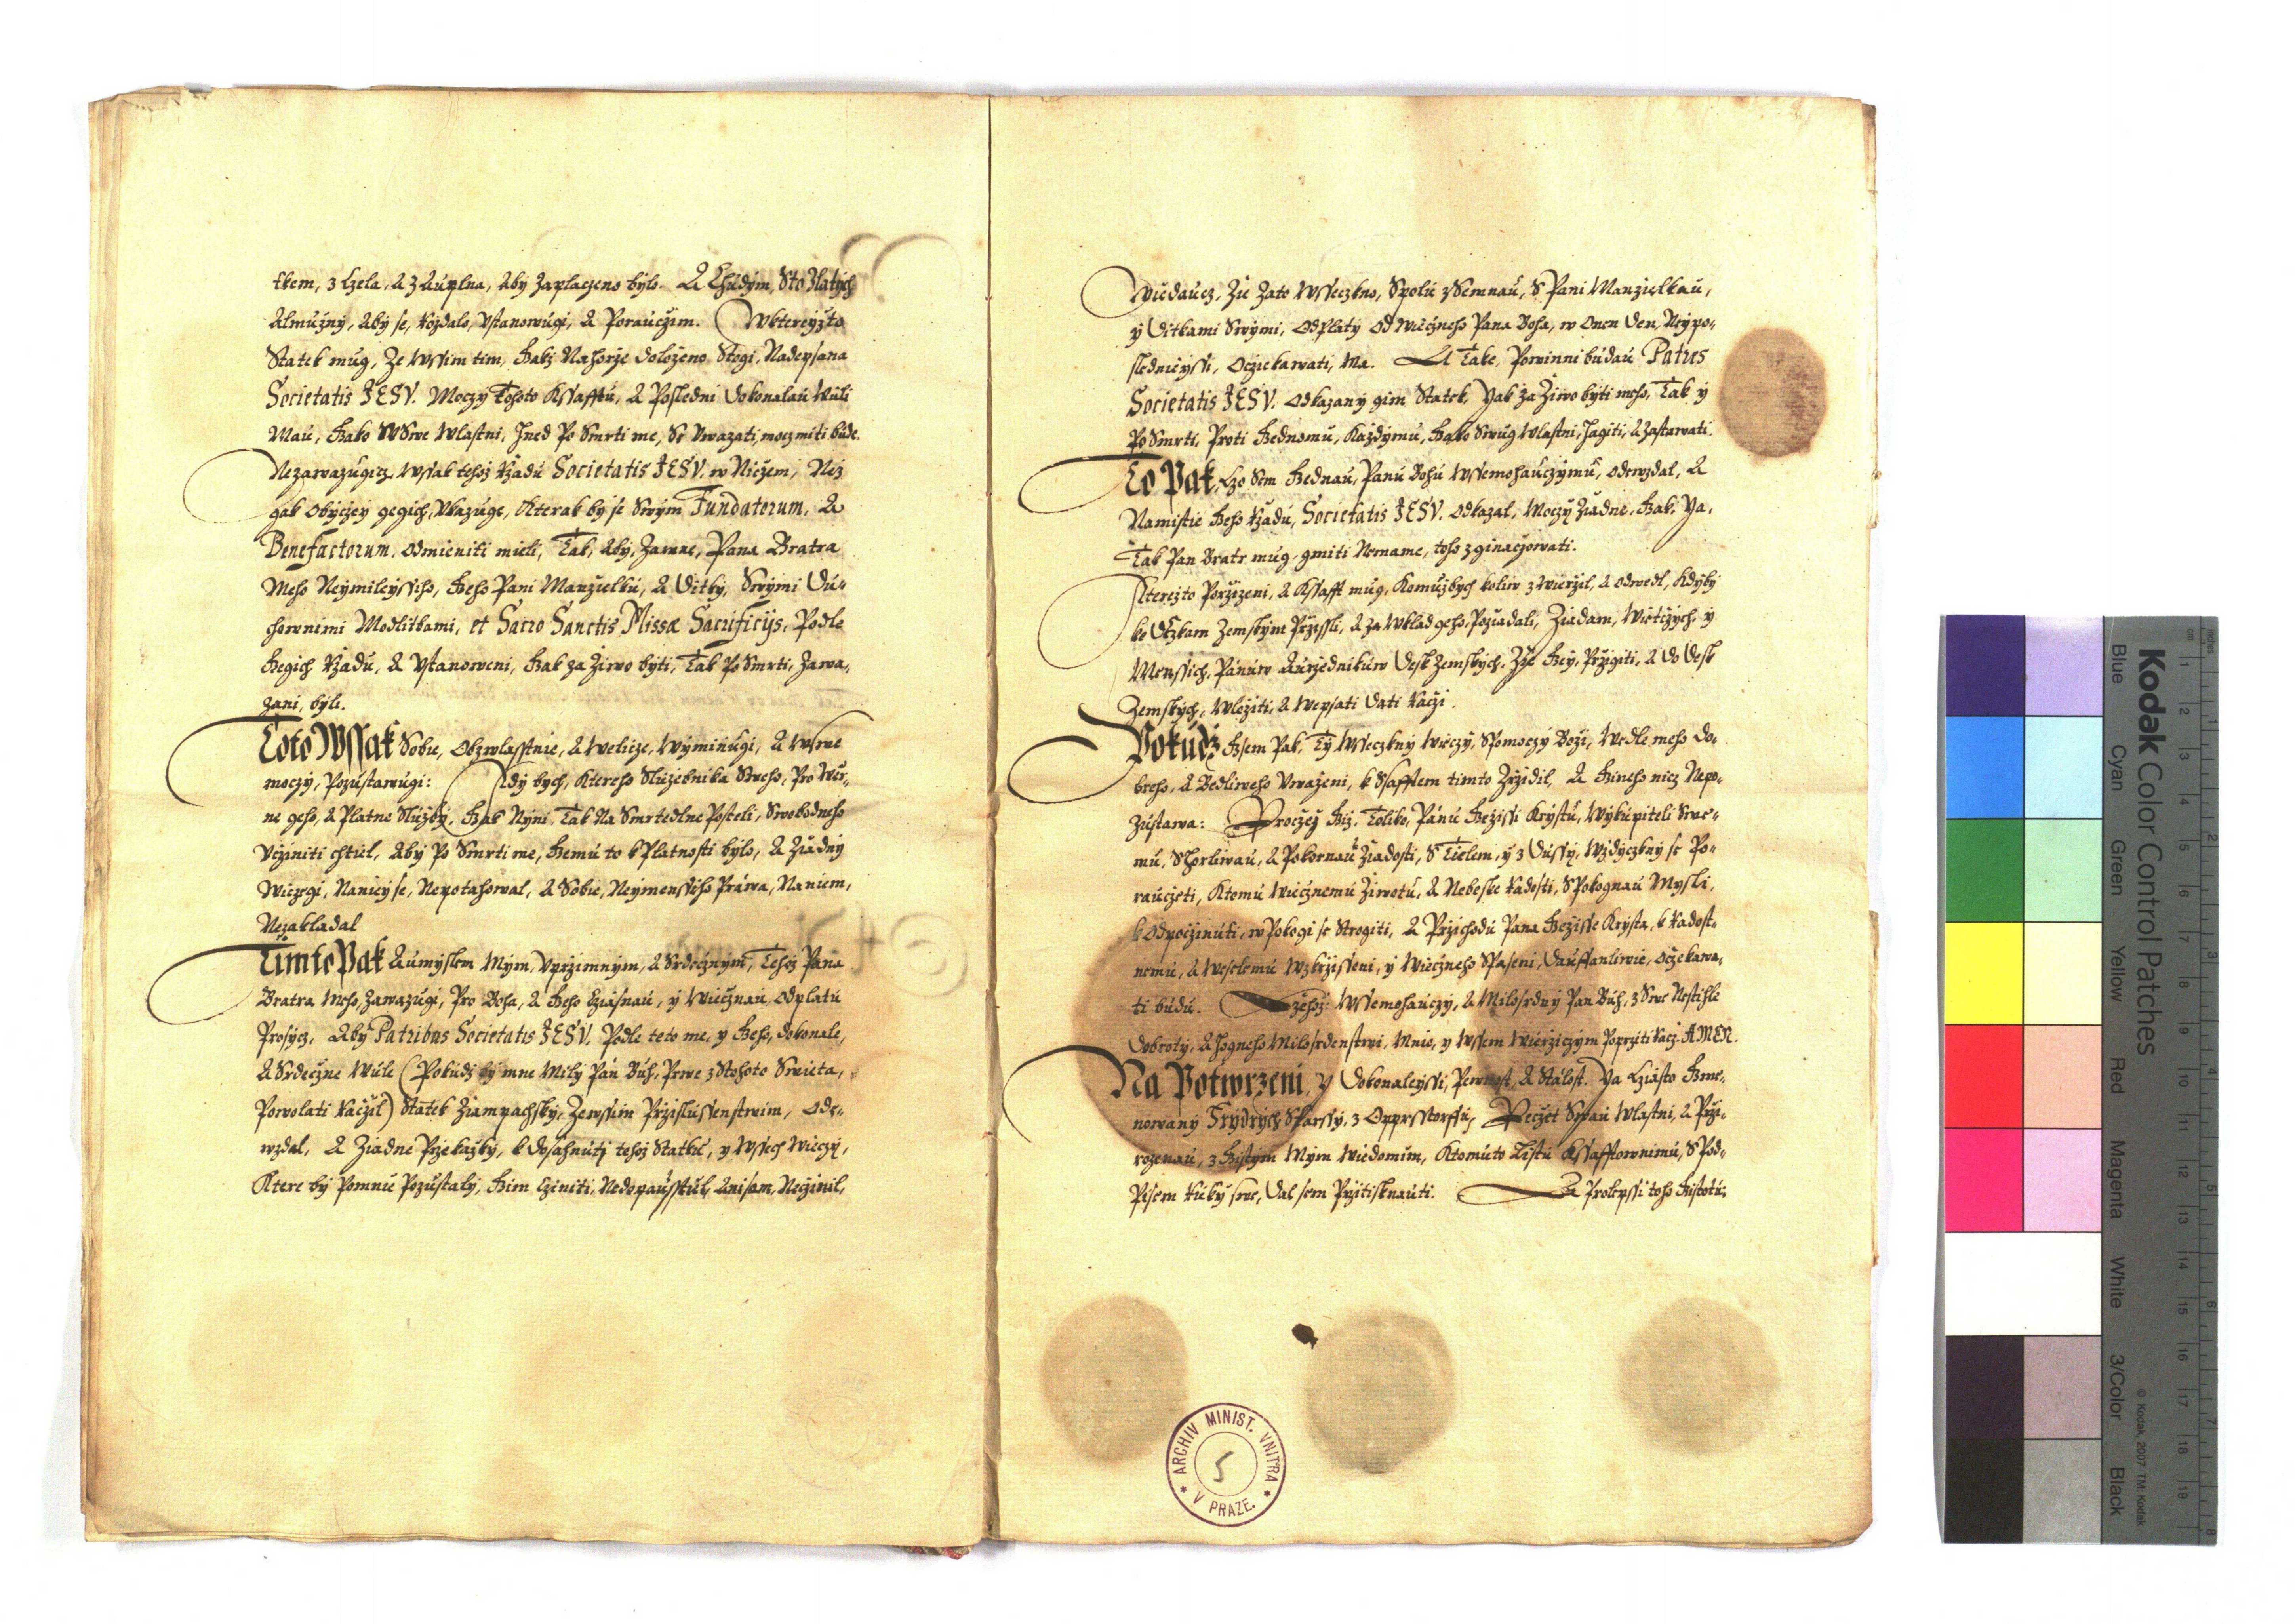 tkem, z Czela, A z Auplna, Aby Zaplaczeno bylo. A Chudym, Sto Zlatych
Almužny, Aby se, Rozdalo, Vstanowugi, A Poraučzim. Wkterezžto
Statek mug, Ze Wssim tim, Jakz Nahorže doloženo Stogi, Nadepsana
Societatis JESV. Moczy Tohoto Kssafftu, A Posledni Dokonalau Wuli
Mau, Jako W Swe Wlastni, Hned Po Smrti me, Se Vwazati, mocz miti bude.
Nezawazugicz, Wssak tehoz Ržadu Societatis JESV. w Ničzem, Než
gak Obyčzey gegich, Vkazuge, Kterak by se Swym Fundatorum, A
Benefactorum, Odmieniti mieli, Tak, Aby, Zawne, Pana Bratra
Meho Neymileyssiho, Jeho Pani Manželku, A Ditky, Swymi Du-
chownimi Modlitbami, et Sacro Sanctis Missæ Sacrificijs, Podle
Jegich Ržadu, A Vstanoweni, Jak za Žiwo byti, Tak Po Smrti, Zawa-
zani, byli.
Toto Wssak Sobie, Obzwlasstnie, A Welicze, Wyminugi, A W Swe
moczy, Pozustawugi: Kdy bych, Ktereho Služebnika Sweho, Pro Wier-
ne geho, A Platne Služby, Jak Nyni, Tak Na Smrtedlne Posteli, Swobodneho
Včziniti chtiel, Aby Po Smrti me, Jemu to k Platnosti bylo, A Žiadny
Wiczegi, Naniey se, Nepotahowal, A Sobie, Neymenssiho Prawa, Naniem,
Nezakladal
Timto Pak Aumyslem Mym, Vprzimnym, A Srdečznym, Tehož Pana
Bratra Meho, Zawazugi, Pro Boha, A Jeho Cziasnau, y Wiečznau, Odplatu
Prosycz, Aby Patribus Societatis JESV. Podle teto me, y Jeho, dokonale,
A Srdečzne Wule (Pokudz by mne Mily Pan Buh, Prwe z Stohoto Swieta,
Powolati Račzil) Statek Žiampachsky, Zewssim Pržislussenstwim, Ode-
wzdal, A Žiadne Pržekažky, k Dosahnuti tehož Statku, y Wssech Wieczy,
Ktere by Pomnie Pozustaly, Jim Cziniti, Nedopausstiel, Ani sam, Nečzinil,
Wiedaucz, Že Zato Wsseczkno, Spolu z Semnau, S Pani Manželkau,
y Ditkami Swymi, Odplaty Od Wiečzneho Pana Boha, w Onen Den, Neypo-
sledniejssi, Očziekawati, Ma. A Take, Powinni budau Patres
Societatis JESV. Odkazany gim Statek, Yak za Žiwo byti meho, Tak y
Po Smrti, Proti Jednomu, Každymu, Jako Swug Wlastni, Hagiti, A Zastawati.
To Pak, Czo Sem Jednau, Panu Bohu Wssemohauczymu, Odewzdal, A
Namistie Jeho Ržadu, Societatis JESV. Odkazal, Moczy Žiadne, Jak, Ya,
Tak Pan Bratr mug, gmiti Nemame, toho zginaczowati.
Kterežto Poržizeni, A Kssafft mug, Komužbych koliw zwieržil, A Odwedl, Kdyby
ke Dczkam Zemskym Pržissli, A Za Wklad geho, Požiadali, Žiadam, Wietczych, y
Menssich, Panuw Auržednikuw Desk Zemskych, Že Jey, Pržigiti, A Do Desk
Zemskych, Wložiti, A Wepsati Dati Račzi.
Pokudž Jsem Pak, Ty Wsseczkny Wieczy, S Pomoczy Boži, Wedle meho do-
breho, A Bedliweho Vwaženi, k Ssafftem timto Zržidil, A Jineho nicz Nepo-
zustawa: Procžež Již, Toliko, Panu Ježissi Krystu, Wykupiteli Swe-
mu, S Horliwau, A Pokornau Žiadosti, S Tielem, y z Dussy, Wzdyczkny se Po-
raučzeti, Ktomu Wiečznemu Žiwotu, A Nebeske Radosti, S Pokognau Mysli,
k Odpoczinuti, w Pokogi se Strogiti, A Pržichodu Pana Ježisse Krysta, k Radost-
nemu, A Weselemu Wzkržisseni, y Wiečzneho Spaseni, Dauffanliwie, Očzekawa-
ti budu. Czehož Wssemohauczy, A Milosrdny Pan Buh, z Swe Nestihle
Dobroty, A Hogneho Milosrdenstwi, Mnie, y Wssem Wieržiczym Popržiti Račz. AMEN.
Na Potwrzeni, y Dokonaleyssi, Pewnost, A Stalost. Ya Cziasto Jme-
nowany Frydrych Starssy, z Oppersstorffu, Peczet Swau Wlastni, A Prži-
rozenau, z Jistym Mym Wiedomim, Ktomuto Listu Kssafftownimu, S Pod-
Pisem Ruky swe, Dal sem Pržitisknauti. A Prolepssi toho Jistotu,
ARCHIV MINIST. VNITRA V PRAZE.
5
Kodak Color Control Patches
© Kodak, 2007 TM: Kodak
Blue Cyan Green Yellow Red Magenta White 3/Color Black